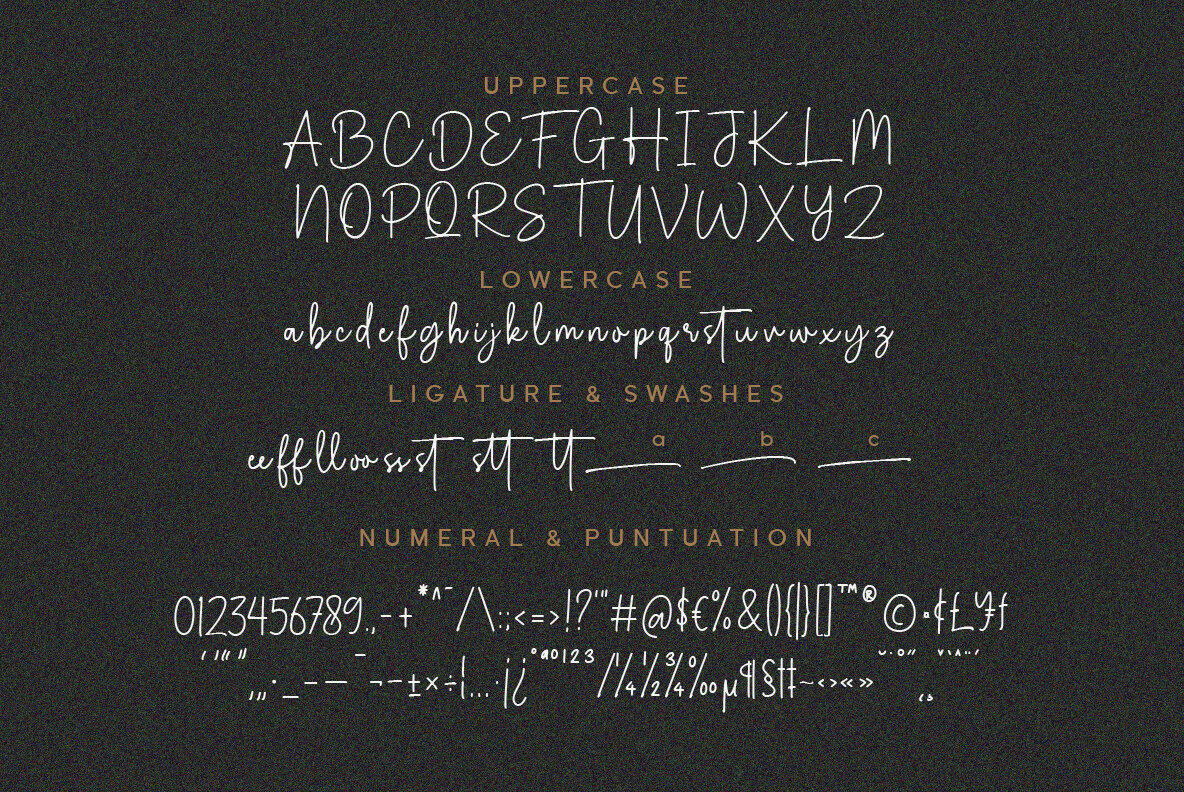 UPPERCASE
ABCDEFGHIJKLM
NOPQRSTUVWXYZ
LOWERCASE
abcdefghijklmnopqrstuvwxyz
LIGATURE & SWASHES
eefflloossst stt tt a b c
NUMERAL & PUNTUATION
0123456789.,-+*^¯/\:;<=>!?'"#@$€%&(){|}[]™®©·¤¢£¥ƒ
‚„·_–—¬-±×÷¦…·¡¿°ªº¹²³/¼½¾‰µ¶§†‡~‹›«»